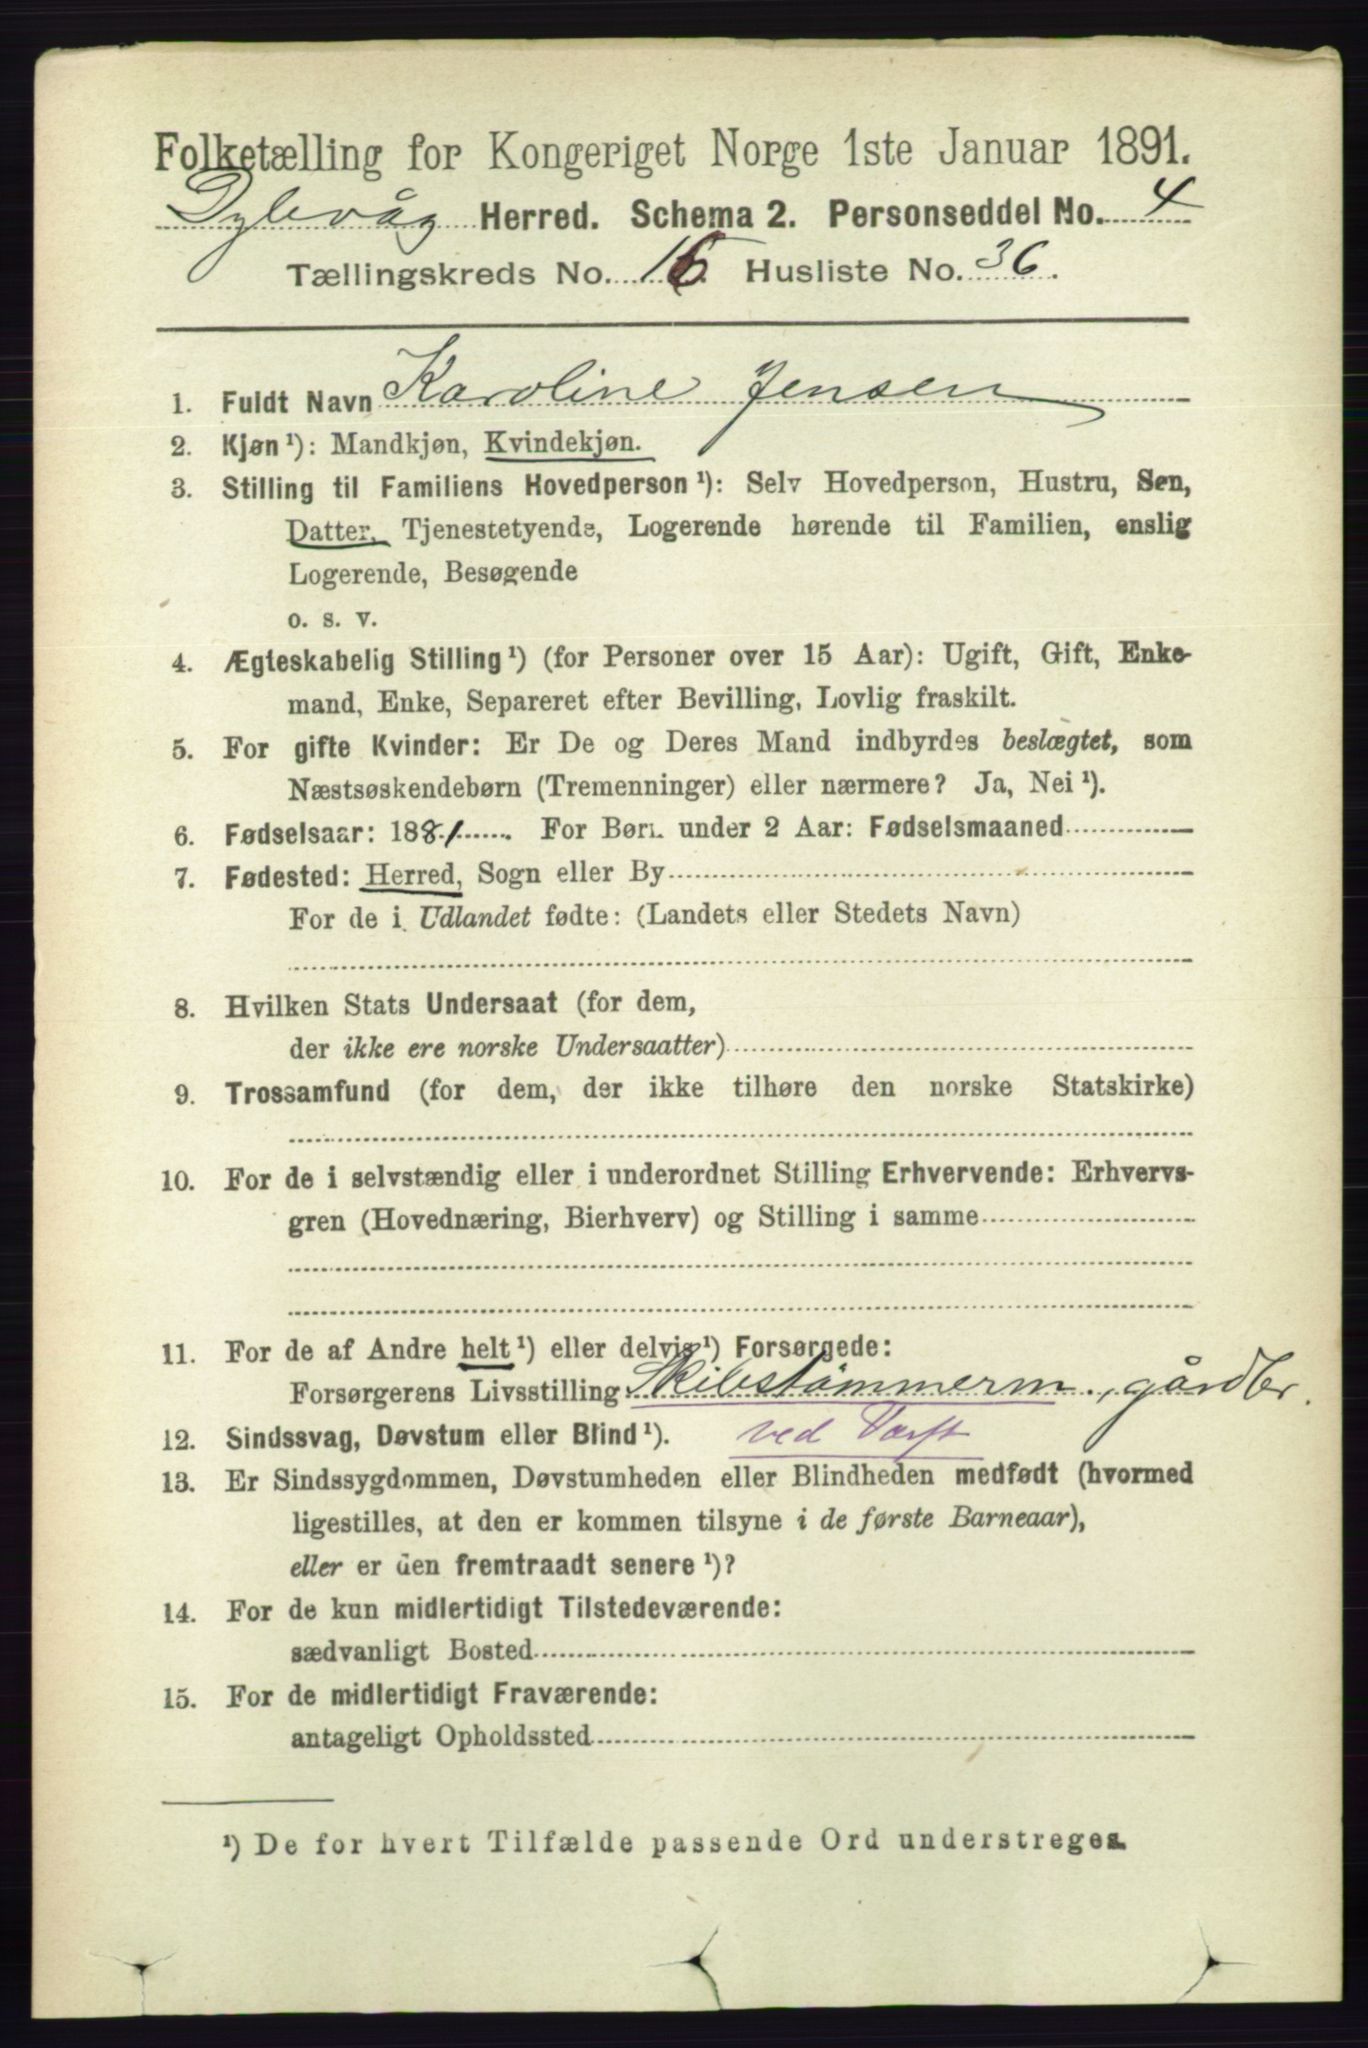 Folketælling for Kongeriget Norge 1ste Januar 1891.
Dybvåg Herred. Schema 2. Personseddel No. 4
Tællingskreds No. 16. Husliste No. 36.
1. Fuldt Navn Karoline Jensen
2. Kjøn¹): Mandkjøn, Kvindekjøn.
3. Stilling til Familiens Hovedperson¹): Selv Hovedperson, Hustru, Søn,
Datter, Tjenestetyende, Logerende hørende til Familien, enslig
Logerende, Besøgende
o. s. v.
4. Ægteskabelig Stilling¹) (for Personer over 15 Aar): Ugift, Gift, Enke-
mand, Enke, Separeret efter Bevilling, Lovlig fraskilt.
5. For gifte Kvinder: Er De og Deres Mand indbyrdes beslægtet, som
Næstsøskendebørn (Tremenninger) eller nærmere? Ja, Nei¹).
6. Fødselsaar: 1881. For Børn under 2 Aar: Fødselsmaaned
7. Fødested: Herred, Sogn eller By
For de i Udlandet fødte: (Landets eller Stedets Navn)
8. Hvilken Stats Undersaat (for dem,
der ikke ere norske Undersaatter)
9. Trossamfund (for dem, der ikke tilhøre den norske Statskirke)
10. For de i selvstændig eller i underordnet Stilling Erhvervende: Erhvervs-
gren (Hovednæring, Bierhverv) og Stilling i samme
11. For de af Andre helt¹) eller delvis¹) Forsørgede:
Forsørgerens Livsstilling Skibstømmerm., gårdbr.
12. Sindssvag, Døvstum eller Blind¹). ved Værft
13. Er Sindssygdommen, Døvstumheden eller Blindheden medfødt (hvormed
ligestilles, at den er kommen tilsyne i de første Barneaar),
eller er den fremtraadt senere¹)?
14. For de kun midlertidigt Tilstedeværende:
sædvanligt Bosted
15. For de midlertidigt Fraværende:
antageligt Opholdssted
¹) De for hvert Tilfælde passende Ord understreges.